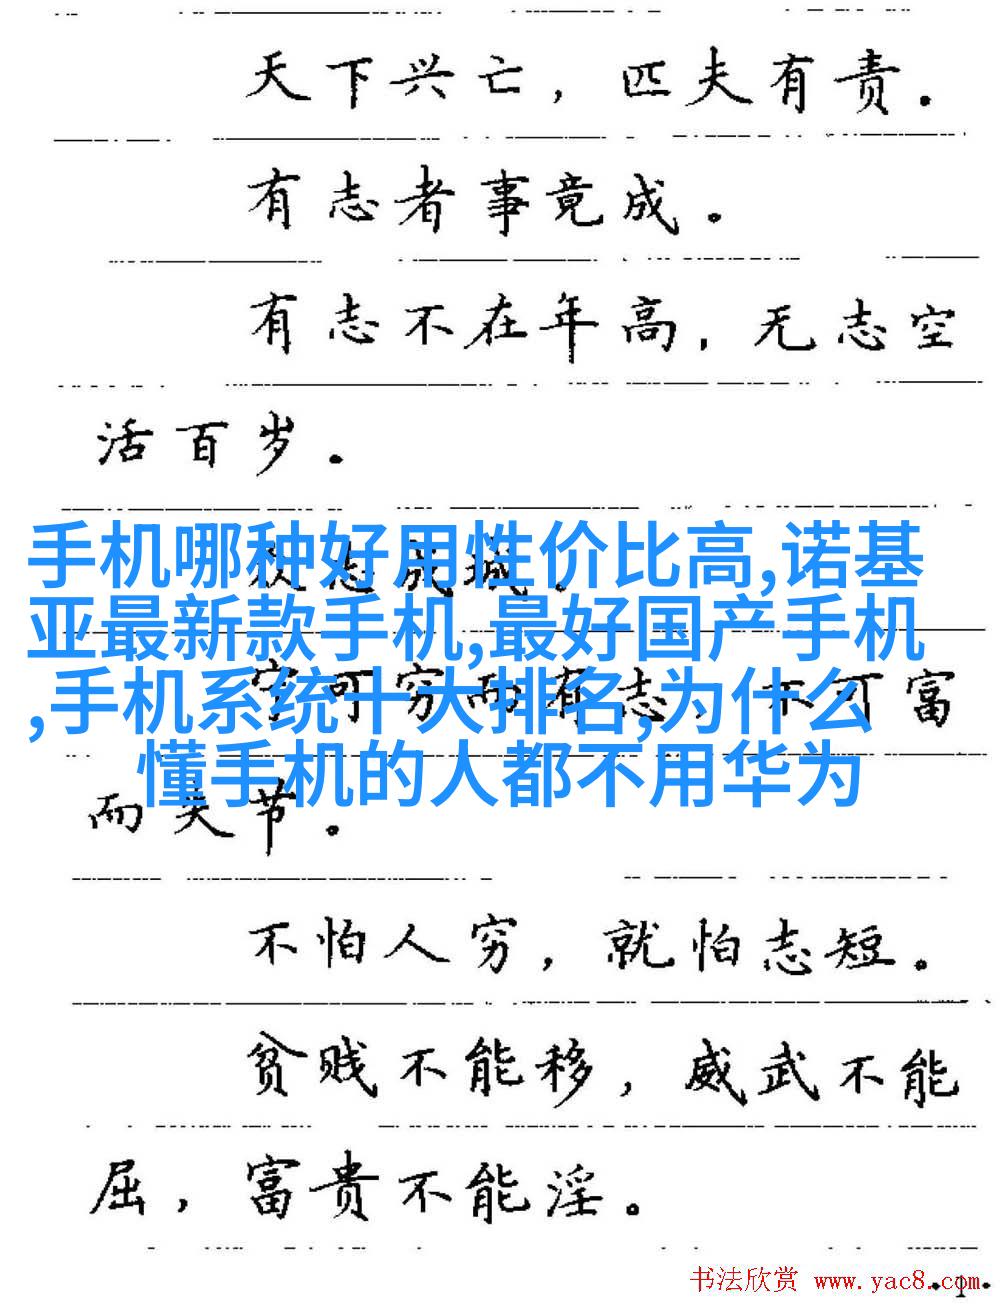 天下兴亡，匹夫有责．
有志者事竟成。
有志不在年高，无志空
活百岁．
手机哪种好用性价比高,诺基
亚最新款手机,最好国产手机
,手机系统十大排名,为什么
懂手机的人都不用华为
可穷而有志，不可富
而失节。
不怕人穷，就怕志短。
贫贱不能移，威武不能
屈，富贵不能淫。
书法欣赏 www.yac8.com
·1·